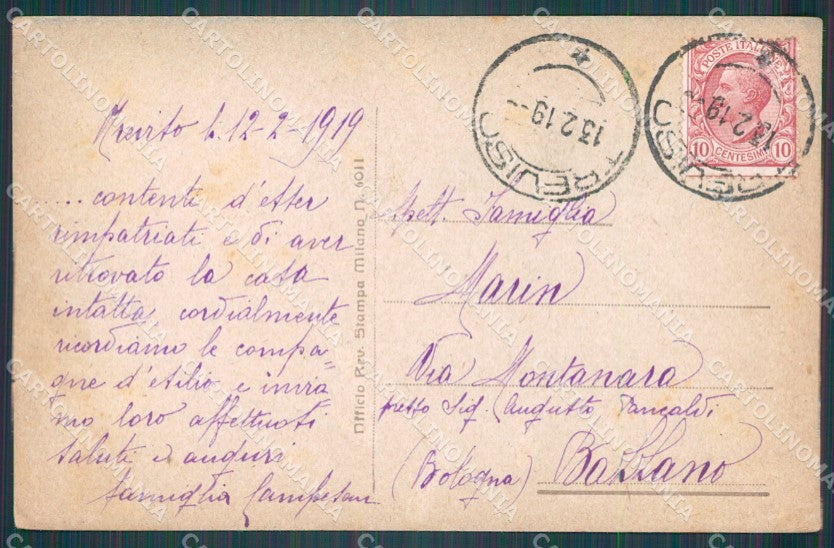 Treviso li 12-2-1919
....contenti d'esser
rimpatriati e di aver
ritrovato la casa
intatta cordialmente
ricordiamo le compa=
gne d'esilio e invia
mo loro affettuosi
saluti ed auguri
famiglia
Ufficio Rev. Stampa Milano N. 6011
Spett. Famiglia
Marin
Via Montanara
presso Sig. Augusto Tancaldi
(Bologna) Bazzano
TREVISO
13.2.19
TREVISO
13.2.19
POSTE ITALIANE
10 CENTESIMI 10
CARTOLINOMANIA